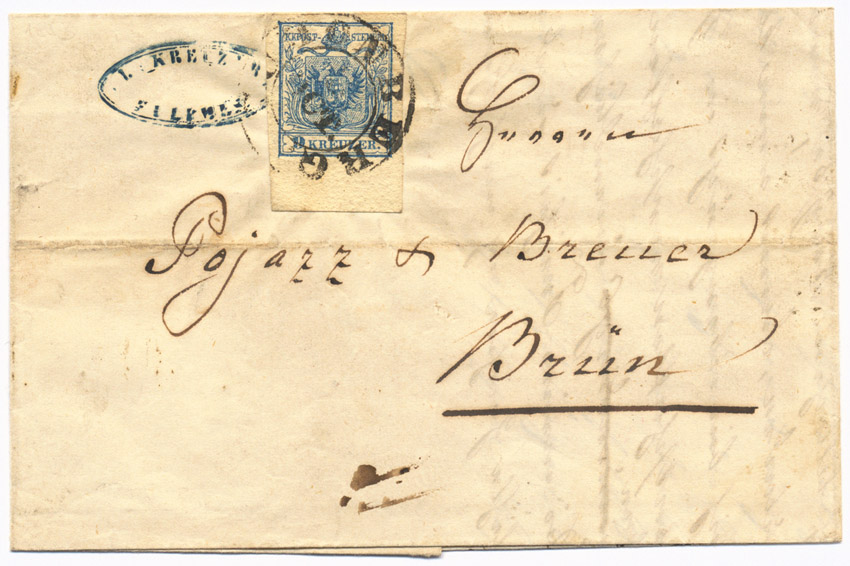 KREUZER
KK POST-STEMPEL
9 KREUZER.
Herren
Pojazz & Breuer
Brün